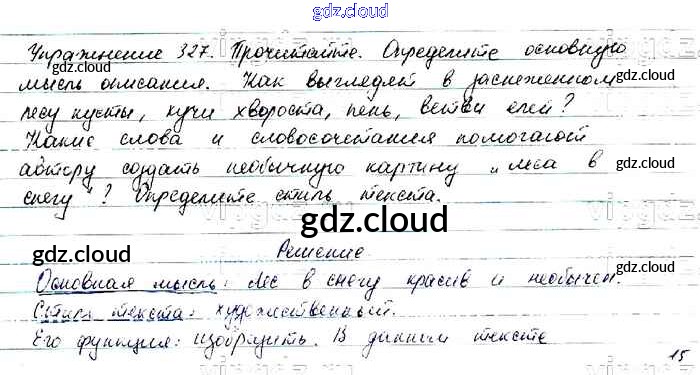 gdz.cloud
Упражнение 327. Прочитайте. Определите основную
gdz.cloud
мысль описания. Как выглядят в заснеженном
gdz.cloud
лесу кусты, кучи хвороста, пень, ветви елей?
Какие слова и словосочетания помогают
автору создать необычную картину "леса в
gdz.cloud
снегу"? Определите стиль текста.
gdz.cloud
gdz.cloud
Решение
gdz.cloud
Основная мысль: Лес в снегу красив и необычен.
Стиль текста: художественный.
gdz.cloud
Его функция: изобразить. В данном тексте
15